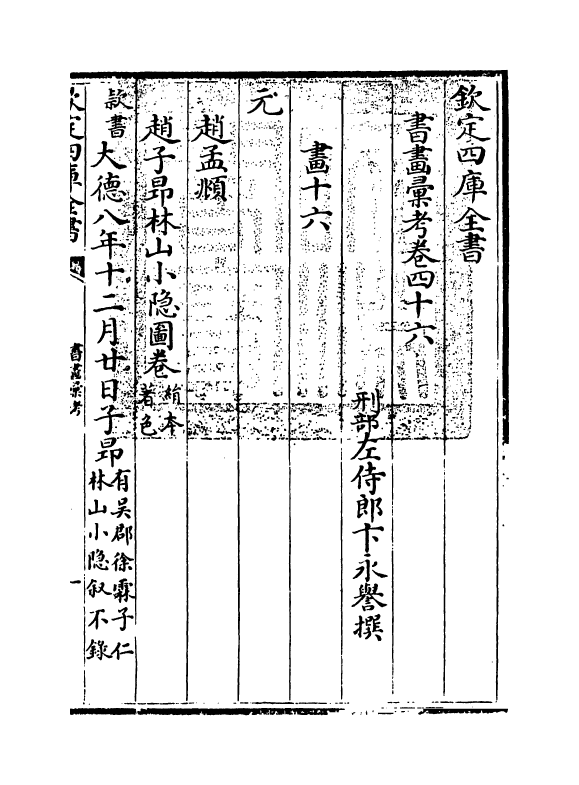 欽定四庫全書
書畫彙考卷四十六
刑部左侍郎卞永譽撰
畫十六
元
趙孟頫
趙子昂林山小隐圖卷
絹本
著色
款書
大德八年十二月廿日子昂
有吴郡徐霖子仁
林山小隐叙不錄
欽定四庫全書
書畫彙考
一